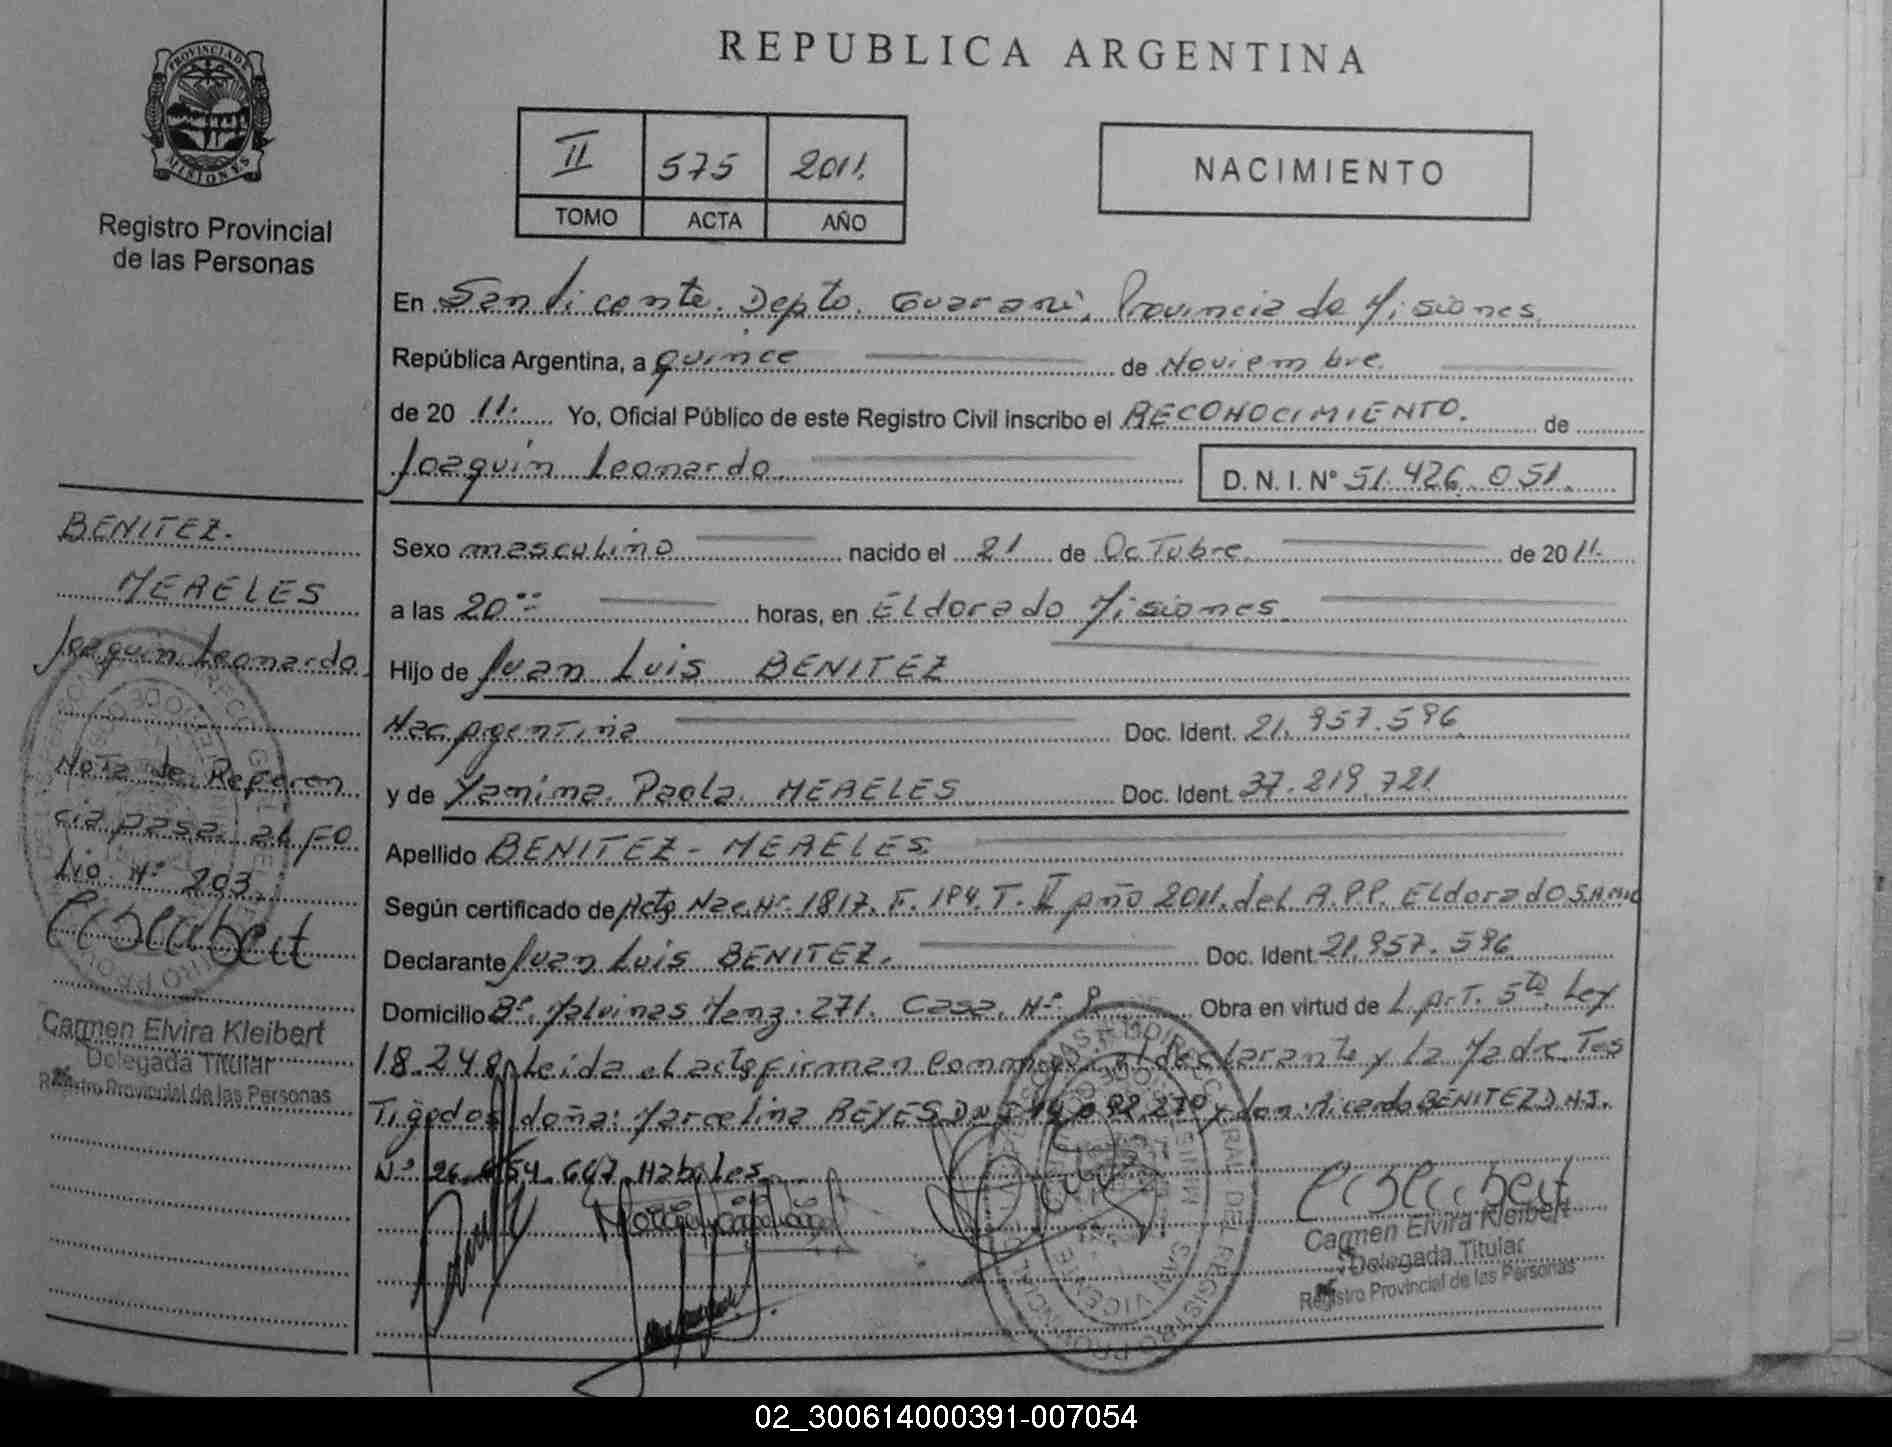 PROVINCIA DE
MISIONES
Registro Provincial
de las Personas
REPUBLICA ARGENTINA
II 575 2011.
TOMO ACTA AÑO
NACIMIENTO
En San Vicente. Depto. Guaraní, Provincia de Misiones.
República Argentina, a quince de Noviembre.
de 20 11. Yo, Oficial Público de este Registro Civil inscribo el RECONOCIMIENTO. de
Joaquin Leonardo. D. N. I. Nº 51.426.051.
Sexo masculino nacido el 21 de Octubre. de 2011.
a las 20 horas, en Eldorado Misiones.
Hijo de Juan Luis BENITEZ
Nac Argentina Doc. Ident. 21.957.596
y de Yanina Paola MERELES Doc. Ident. 37.219.721
Apellido BENITEZ - MERELES
Según certificado de Acta Nac. Nº 1817. F. 194. T. II Año 2011. del R.P.P. Eldorado
Declarante Juan Luis BENITEZ. Doc. Ident 21.957.596
Domicilio Bº. Malvinas Manz. 271. Casa. Nº 8 Obra en virtud de L. Art. 5to Ley
18.248 Leída el acta firman conmigo: el declarante y La Madre Tes
Tigodos doña: Marcelina REYES D.N.I y don: Ricardo BENITEZ D.N.I.
Nº 26. 54.667 Habiles
BENITEZ.
MERELES
Joaquin Leonardo
Nota de Referen
cia pasa al FO
Lio Nº 203.
Carmen Elvira Kleibert
Delegada Titular
Registro Provincial de las Personas
Carmen Elvira Kleibert
Delegada Titular
Registro Provincial de las Personas
02_300614000391-007054